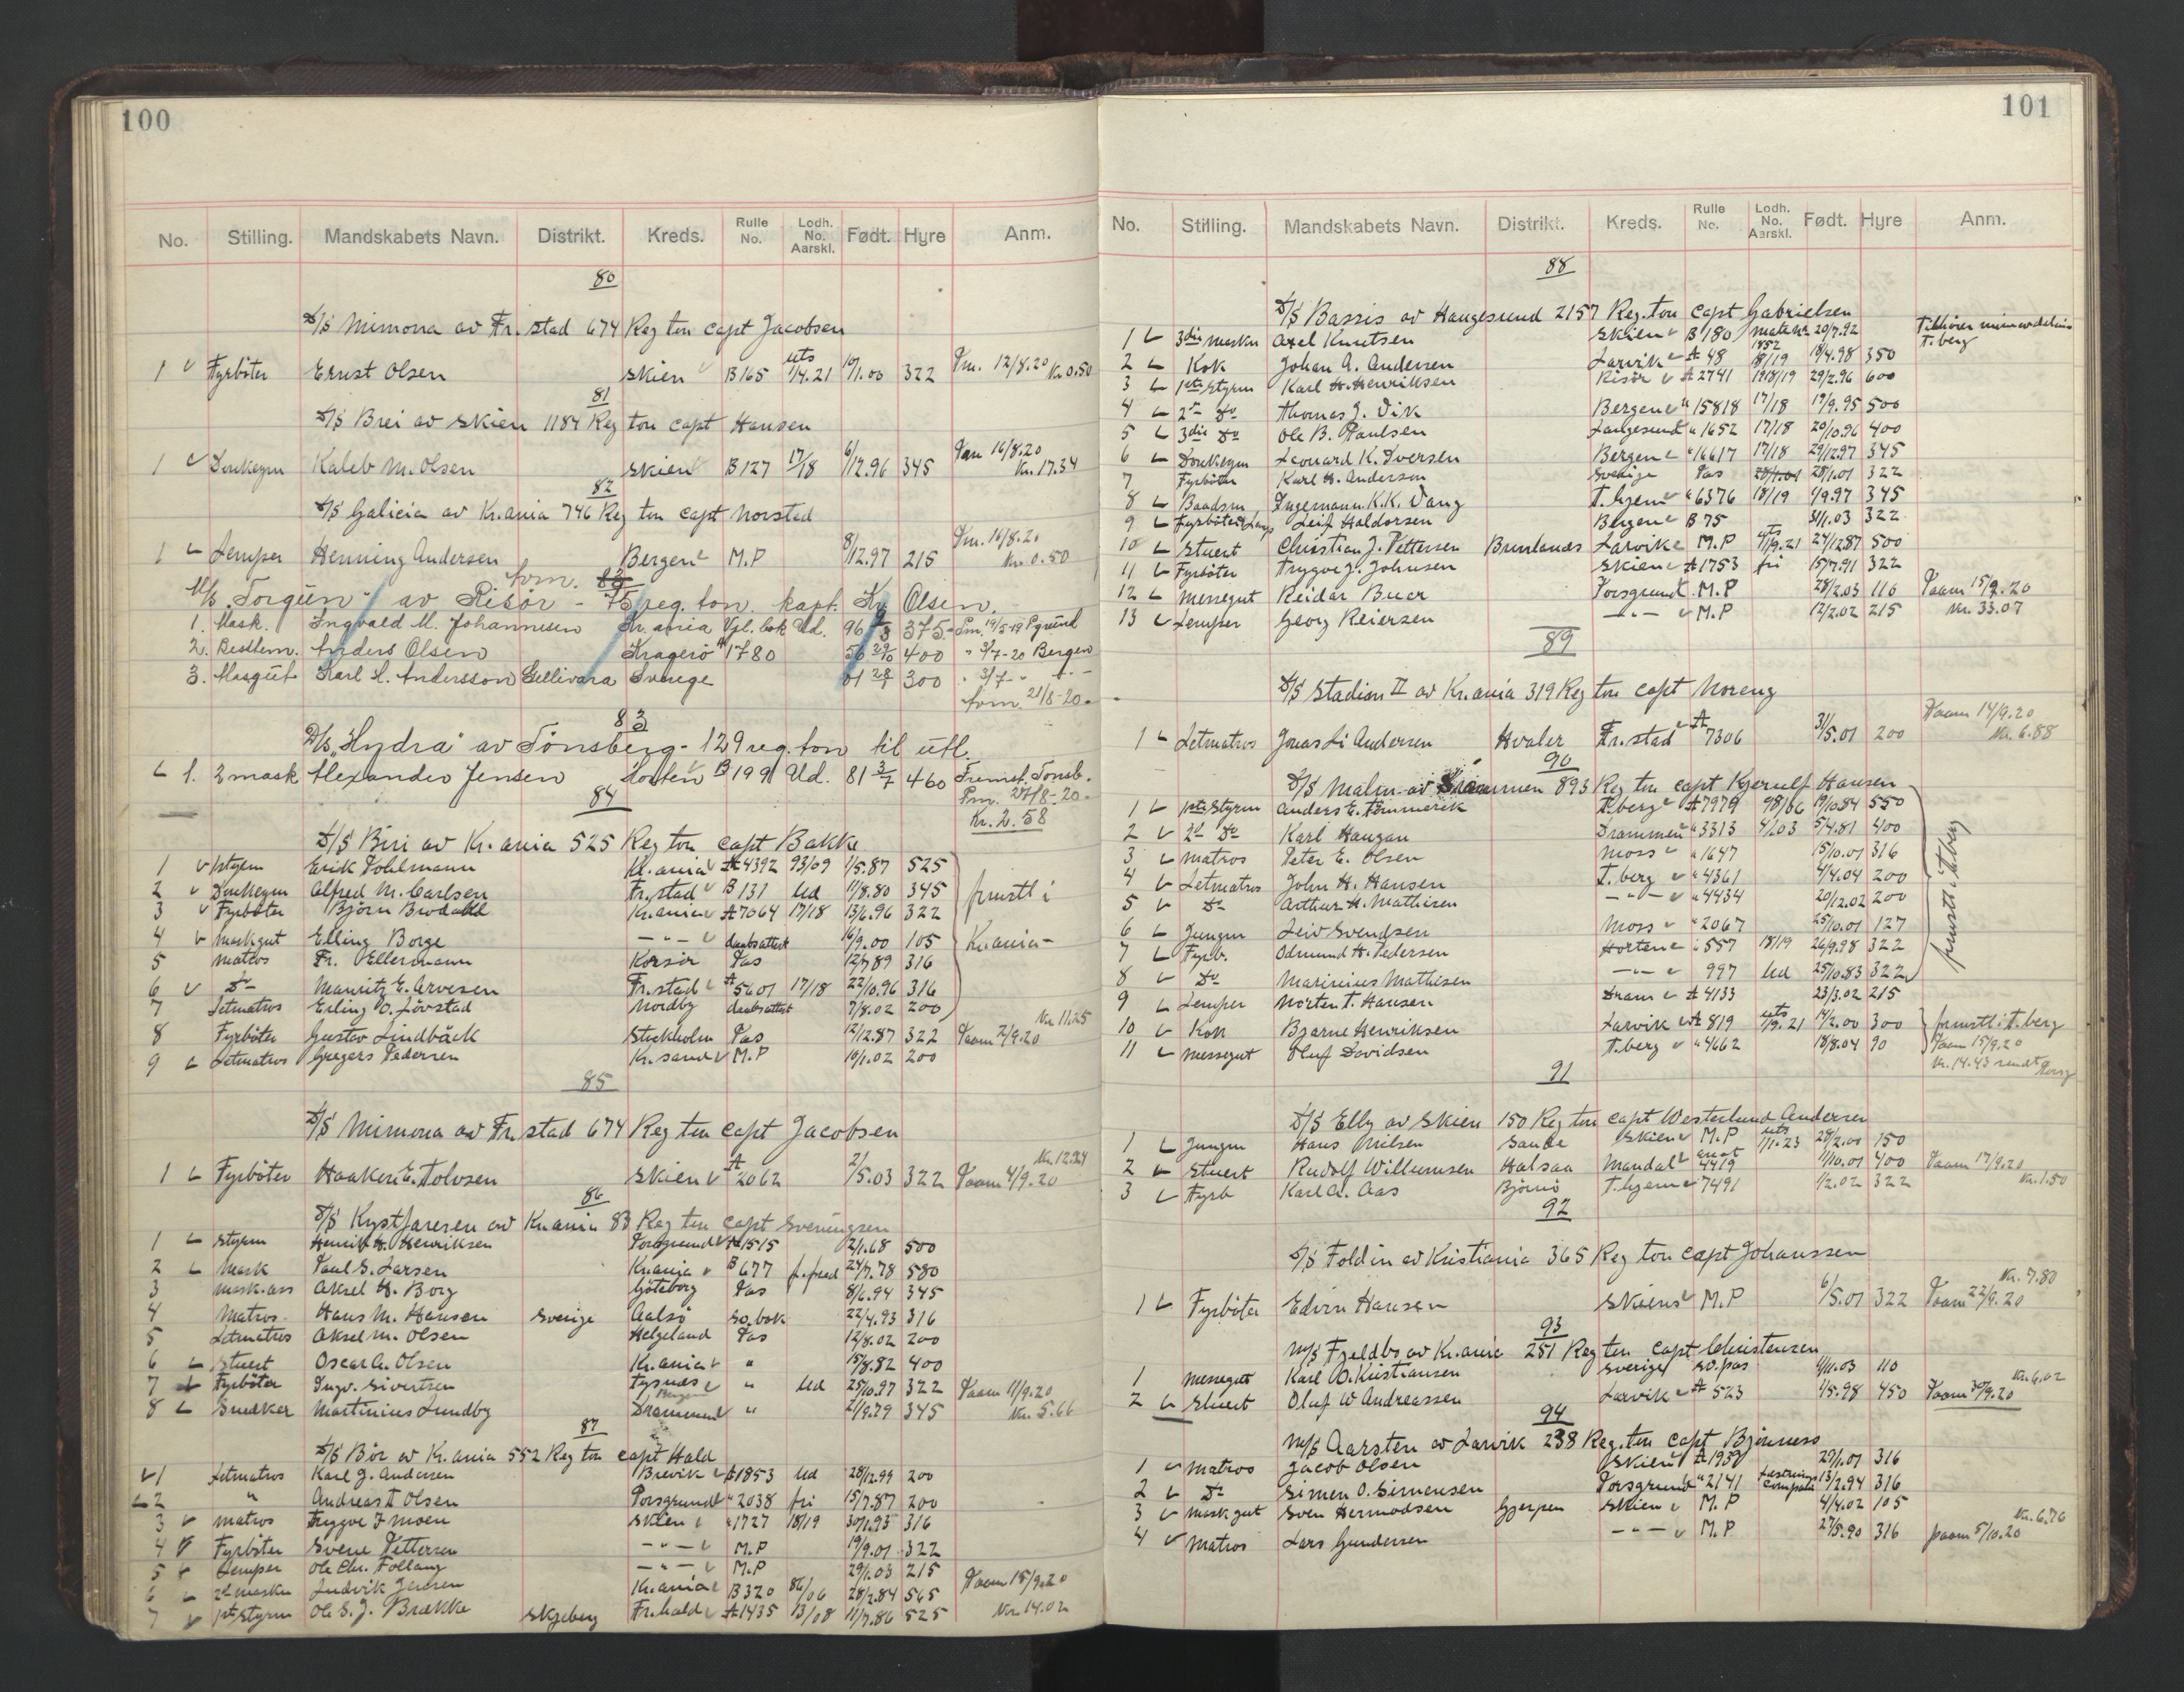 100
No. Stilling. Mandskabets Navn. Distrikt. Kreds. Rulle No. Lodh. No. Aarskl. Født. Hyre Anm.
80
D/S Mimona av Fr.stad 674 Reg ton capt Jacobsen
1 Fyrböter Ernst Olsen Skien B165 uts 1/4.21 10/1.00 322 Pm. 12/8.20 Kr 0.50
81
D/S Brei av Skien 1184 Reg ton capt Hansen
1 Donkeym Kaleb M. Olsen Skien B127 17/18 6/12.96 345 Paa 16/8.20 Kr. 17.34
82
D/S Galicia av Kr.ania 746 Reg ton capt Norstad
1 Lemper Henning Andersen Bergen M.P 8/12.97 215 Pm. 16/8.20 Kr. 0.50
forn. 83
M/S "Torgun" av Risör - 75 reg. ton. kapt. Kr Olsen.
1. Mask. Ingvald M. Johannesen Kr.ania Vpl. bok Ud. 96 9/3 375.- Pm. 19/5-19 Pgrund
2. Bestlem. Anders Olsen Kragerö A 1780 56 29/10 400 " 3/7-20 Bergen
3. Masgut Karl H. Andersson Gellivara Sverige 01 28/1 300 " 3/7 - " -
forn. 21/8-20.
83
D/S "Hydra" av Tönsberg - 129 reg. ton til utl.
1. 2 mask Alexander Jensen Horten B 199 Ud. 81 3/7 460 Fremst. Tönsb.
Pm. 27/8-20.
Kr. 2.58
84
D/S Biri av Kr.ania 525 Reg ton capt Bakke
1 1styrm Erik Pohlmann Kr.ania A 4392 93/09 1/5.87 525
2 Donkeym Alfred M. Carlsen Fr.stad B 131 Ud 11/8.80 345 fmstl i
3 Fyrböter Björn Brodahl Kr.ania A 7064 17/18 13/6.96 322
4 Maskgut Elling Borge - " - daabsattest 16/9.00 105 Kr.ania-
5 Matros Fr. Ellermann Korsör Pas 12/7.89 316
6 Do Mauritz E. Arvesen Fr.stad A 5601 17/18 22/10.96 316
7 Letmatros Erling O. Jövstad Nordby daabsattest 7/8.02 200
8 Fyrböter Gustav Lindbäck Stockholm Pas 12/12.87 322 Paam 2/9.20 Kr. 11.25
9 Letmatros Gregers Pedersen Kr.sand M.P 10/1.02 200
85
D/S Mimona av Fr.stad 674 Reg ton capt Jacobsen
1 Fyrböter Haaken E. Tolvsen Skien A 2062 2/5.03 322 Paam 4/9.20 Kr. 12.24
86
D/S Kystfareren av Kr.ania 83 Reg ton capt Sveningsen
1 Styrm Henrik H. Henriksen Porsgrund A 1515 2/1.68 500
2 Mask Paul G. Larsen Kr.ania B 677 f.fred 24/7.78 580
3 mask.ass Aksel H. Borg Göteborg Pas 8/6.94 345
4 Matros Hans M. Hansen Sverige Aalsö so.bok 22/4.93 316
5 Letmatros Aksel M. Olsen Helgeland Pas 12/8.02 200
6 Stuert Oscar A. Olsen Kr.ania " 15/8.82 400
7 Fyrböter Ingv. Sivertsen Tysnes Bergen " Ud 25/10.97 322 Paam 11/9.20
8 Snedker Martinius Lundby Drammen " 21/9.79 345 Kr. 5.66
87
D/S Bör av Kr.ania 552 Reg ton capt Hald
1 Letmatros Karl J. Andersen Brevik A 1853 Ud 28/12.99 200
2 " Andreas I Olsen Porsgrund " 2038 fri 15/7.87 200
3 Matros Tryggve J Moen Skien " 1727 18/19 30/1.93 316
4 Fyrböter Svene Pettersen - " - M.P 19/9.01 322
5 Lemper Ole Chr. Follaug - " - M.P 29/1.03 215
6 2d maskn Ludvik Jensen Kr.ania B 320 86/06 28/2.84 565 Paam 15/9.20
7 1ste Styrm Ole S. J. Brække Skjeberg Fr.hald A 1435 13/08 11/7.86 525 Kr. 14.02
101
No. Stilling. Mandskabets Navn. Distrikt. Kreds. Rulle No. Lodh. No. Aarskl. Født. Hyre Anm.
88
D/S Bassis av Haugesund 2157 Reg. ton capt Gabrielsen
1 3die maskn Axel Knutsen Skien B 180 20/7.92 Tilhörer T.berg
2 Kok Johan A. Andersen Larvik A 48 18/19 18/4.98 350
3 1ste Styrm Karl H. Henriksen Risör A 2741 1918/19 29/2.96 600
4 2n Do Thomas J. Vik Bergen " 15818 17/18 19/9.95 500
5 3die Do Ole B. Paulsen Langesund " 1652 17/18 20/10.96 400
6 Donkeym Leonard K. Iversen Bergen " 16617 17/18 29/12.97 345
7 Fyrböter Karl H. Andersen Sverige Pas 28/1.01 28/1.01 322
8 Baadsm Ingemann K.K. Vang T.hjem " 6376 18/19 4/9.97 345
9 Fyrböter Lemps Leif Haldorsen Bergen B 75 31/1.03 322
10 Stuert Christian J. Pettersen Brunlanæs Larvik M.P uts 1/9.21 24/12.87 500
11 Fyrböter Trygve J. Johnsen Skien A 1753 fri 15/7.91 322
12 Messegut Reidar Buer Porsgrund M.P 28/2.03 116 Paam 15/9.20
13 Lemper Georg Reiersen - " - M.P 12/2.02 215 Kr. 33.07
89
D/S Stadion II av Kr.ania 319 Reg ton capt Noreng
1 Letmatros Jonas Li Andersen Hvaler Fr.stad A 7306 31/5.01 200 Paam 14/9.20 Kr. 6.88
90
D/S Malm av Drammen 893 Reg ton capt Kjerulf Hansen
1 1ste Styrm Anders E. Tömmervik T.berg A 7979 98/06 19/10.84 550
2 2d Do Karl Haugan Drammen " 3313 4/03 5/4.81 400
3 Matros Peter E. Olsen Moss " 1647 15/10.01 316
4 Letmatros John H. Hansen T.berg " 4361 4/4.04 200
5 Do Arthur H. Mathisen - " - " 4434 20/12.02 200
6 Jungm Leiv Svendsen Moss " 2067 25/10.01 127
7 Fyrb. Odmund H. Pedersen Horten " 557 18/19 26/9.98 322
8 Do Marinius Mathisen - " - 997 Ud 25/10.83 322
fmstl i T.berg
9 Lemper Morten T. Hansen Dram A 4133 23/3.02 215
10 Kok Bjarne Henriksen Larvik A 819 uts 1/9.21 14/2.00 300 fmstl i T.berg
11 Messegut Oluf Davidsen T.berg " 4662 18/8.04 90 Paam 15/9.20
Kr. 14.43 sendt
91
D/S Elly av Skien 150 Reg ton capt Westerlund Andersen
1 Jungm Hans Nilsen Sande Skien M.P uts 1/1.23 28/2.00 150
2 Stuert Rudolf Willumsen Halsaa Mandal 4419 11/10.01 400 Paam 17/9.20
3 Fyrb Karl A. Aas Björnö T.hjem 7491 1/2.02 322 Kr. 1.50
92
D/S Foldin av Kristiania 365 Reg ton capt Johanssen
1 Fyrböter Edvin Hansen Skien M.P 6/5.01 322 Paam 22/9.20 Kr. 7.80
93
M/S Fjeldbo av Kr.ania 251 Reg ton capt Christensen
1 Messegut Karl O. Kristiansen Sverige so.pas 4/11.03 110
2 Stuert Oluf W Andreassen Larvik A 523 1/5.98 450 Paam 30/9.20 Kr. 6.02
94
M/S Aarsten av Larvik 238 Reg. ton capt Bjönness
1 Matros Jacob Olsen Skien A 1939 29/1.01 316
2 Do Simen O. Simensen Porsgrund " 2141 13/2.94 316
3 Maskgut Sven Hermodsen Gjerpen Skien M.P 4/4.02 105
4 Matros Lars Gundersen - " - M.P 27/5.90 316 paam 5/10.20 Kr. 6.76